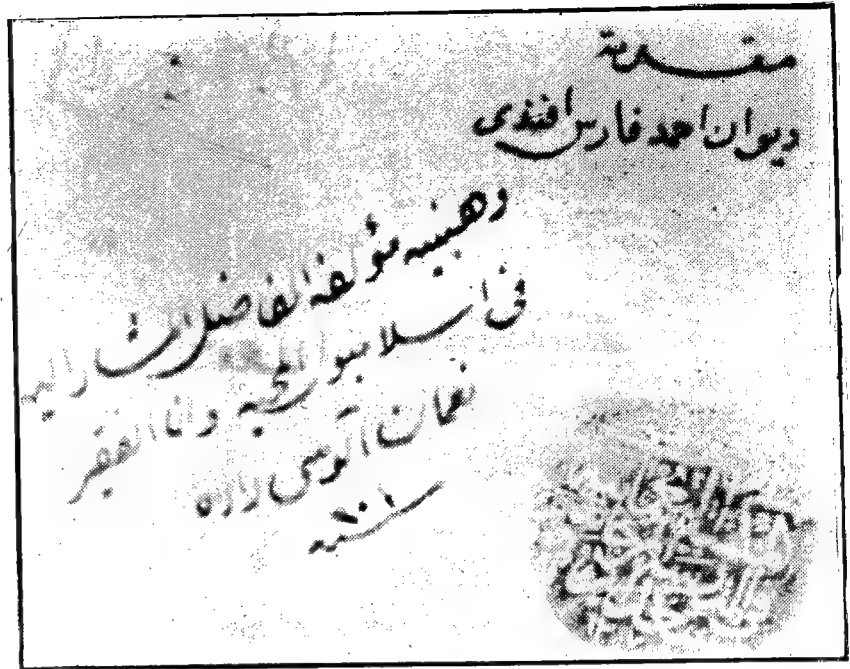 مقدمة
ديوان احمد فارس افندى
وهبنيه مؤلفه الفاضل المشار اليه
فى اسلامبول المحميه وانا الفقير
نعمان آلوسى زاده
سنه